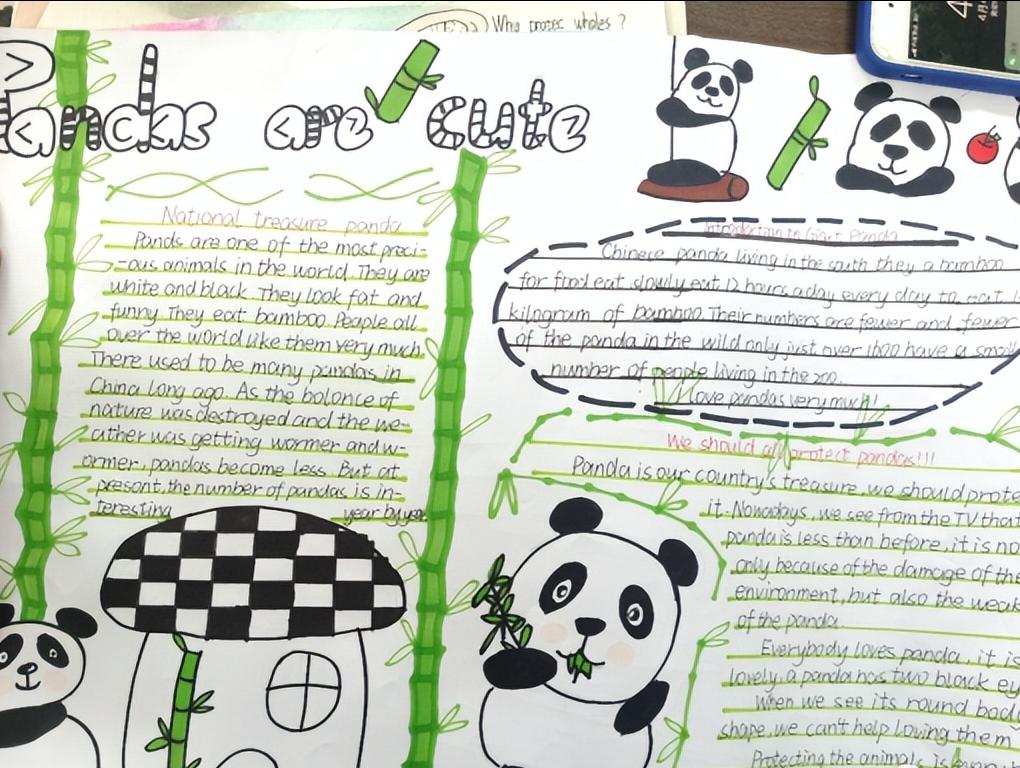 Who protec whales ?
Pandas are cute
National treasure panda
Pands are one of the most preci-
-ous animals in the world. They are
white and black. They look fat and
funny. They eat bamboo. People all
over the world like them very much.
There used to be many pandas in
China long ago. As the balance of
nature was destroyed and the we-
ather was getting wormer and w-
ormer, pandas become less. But at
present, the number of pandas is in-
teresting year by year
Introduction to Giant Panda
Chinese panda living in the south they a bamboo
for food eat slowly eat 12 hours a day every day to eat
kilogram of bamboo. Their numbers are fewer and fewer
of the panda in the wild only just over 1600 have a small
number of people living in the zoo.
I love pandas very much!
We should all protect pandas!!!
Panda is our country's treasure, we should prote
it. Nowadays, we see from the TV that
panda is less than before, it is no
only because of the damage of the
environment, but also the weak
of the panda.
Everybody loves panda, it is
lovely, a panda has two black ey
when we see its round body
shape, we can't help loving them
Protecting the animals is